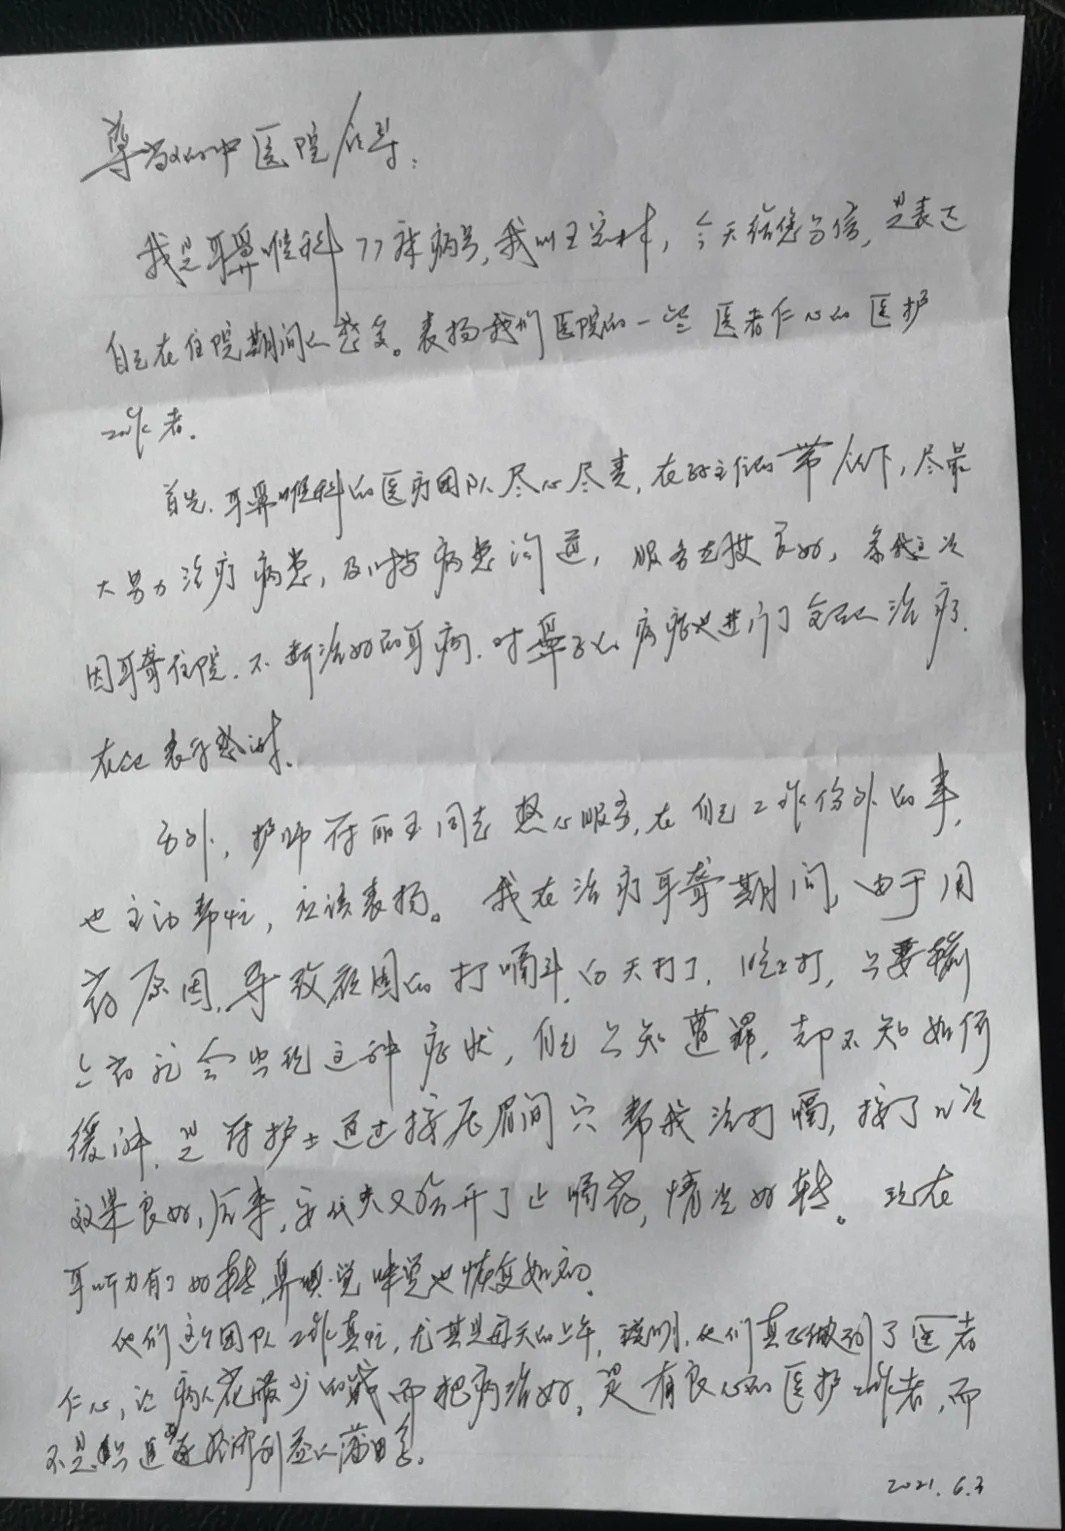 尊敬的中医院领导:
我是耳鼻喉科77床病号,我叫王宝林,今天给您写信,是表达
自己在住院期间的感受。表扬我们医院的一些医者仁心的医护
工作者.
首先.耳鼻喉科的医疗团队尽心尽责,在主任的带领下,尽最
大努力治疗病患,及时与病患沟通,服务态度良好,象我这次
因耳聋住院.不断治好的耳病.对鼻子的病症也进行了全面的治疗.
在此表示感谢.
另外,护师符丽玉同志热心服务,在自己工作份外的事,
也主动帮忙,应该表扬。我在治疗耳聋期间,由于用
药原因,导致顽固的打嗝,白天打了,晚上打,只要输
上药就会出现这种症状,自己只知遭罪,却不知如何
缓解.是符护士通过按压眉间穴帮我治打嗝,按了几次
效果良好,后来,大夫又给开了止嗝药,情况好转。现在
耳听力有了好转,鼻嗅觉味觉也恢复如初.
他们这个团队工作真忙,尤其是每天的上午,说明,他们真正做到了医者
仁心,让病人花最少的钱而把病治好,是有良心的医护工作者,而
不是只追逐经济利益的莆田系.
2021.6.3